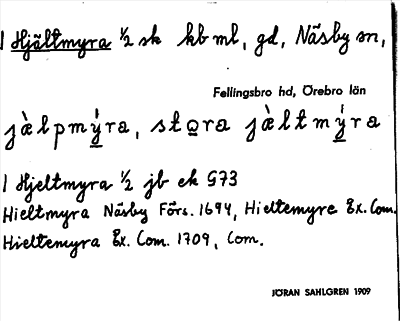 1 Hjältmyra ½ sk kb ml, gd, Näsby sn,
Fellingsbro hd, Örebro län
jàlpmýra, stọra jàltmýra
1 Hjeltmyra ½ jb ek G73
Hieltmyra Näsby Förs. 1694, Hieltemyre Ex. Com.
Hieltemyra Ex. Com. 1709, Com.
JÖRAN SAHLGREN 1909